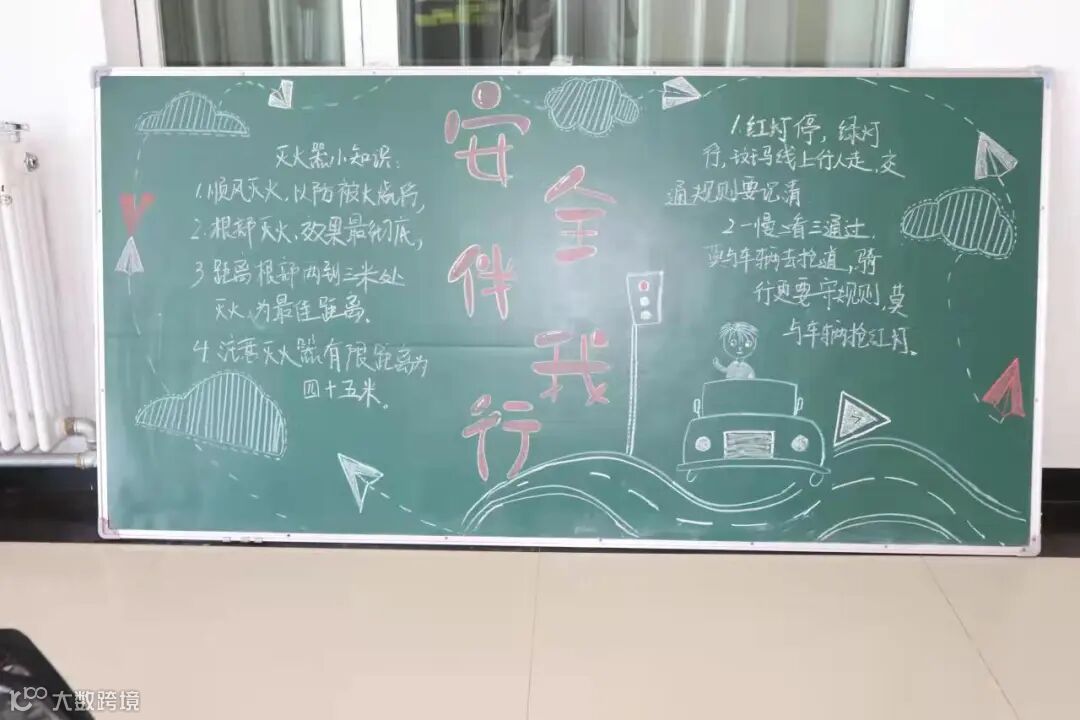 安全伴我行
灭火器小知识:
1.顺风灭火,以防被火烧伤,
2.根部灭火,效果最彻底,
3.距离根部两到三米处
灭火,为最佳距离。
4.注意灭火器有限距离为
四十五米。
1.红灯停,绿灯
行,斑马线上行人走,交
通规则要记清
2.一慢二看三通过,
莫与车辆去抢道,骑
行更要守规则,莫
与车辆抢红灯。
大数跨境